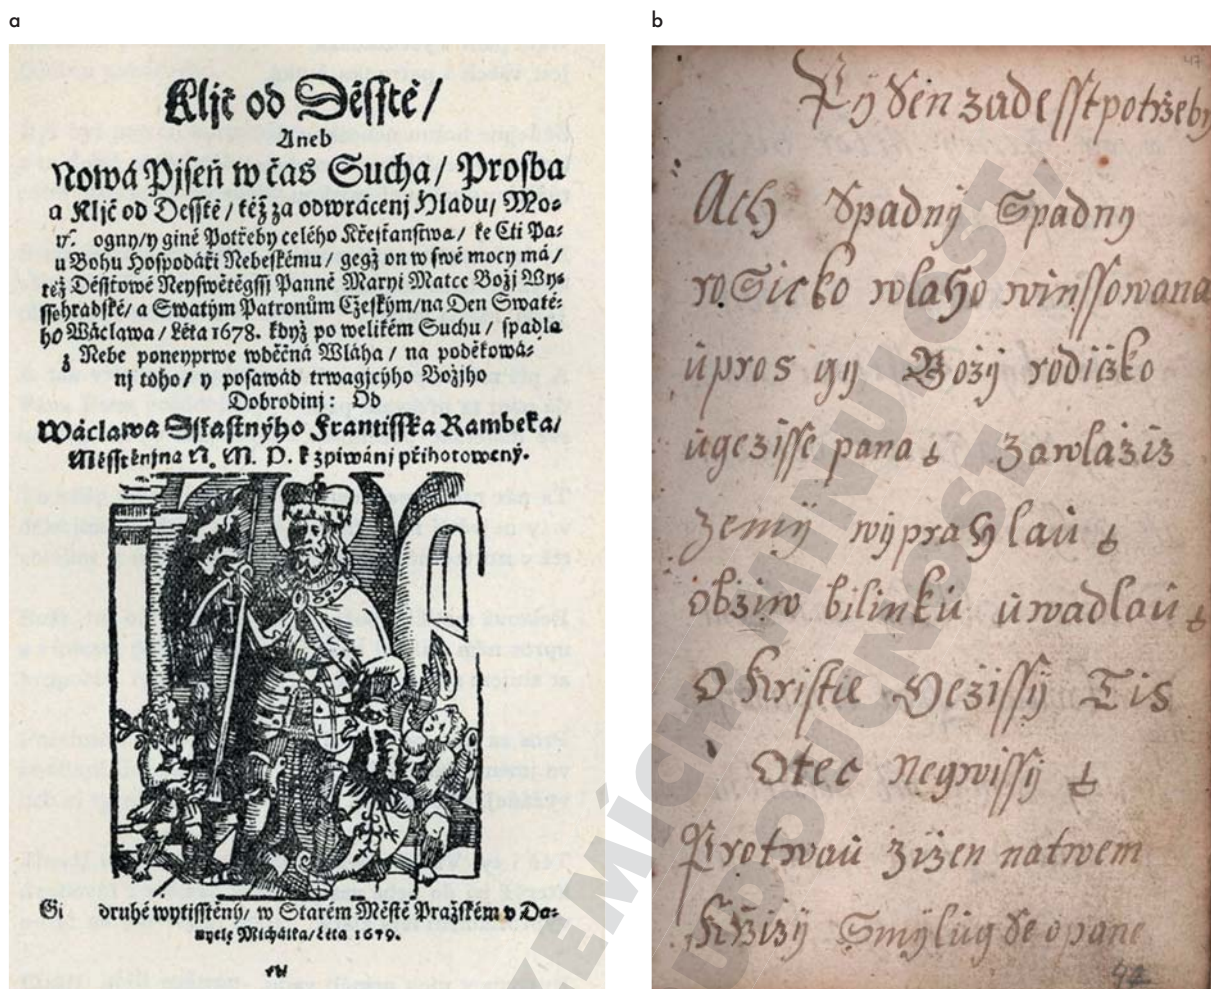 a
Kljč od Děsstě/
Aneb
Nowá Pjseň w čas Sucha/ Prosba
a Kljč od Desstě/ též za odwrácenj Hladu/ Mo-
ogny/y giné Potřeby celého Křestianstwa/ ke Cti Pa-
u Bohu Hospodáři Nebeskému/ gegž on w swé mocy má/
též Děsstowé Neyswětěgssj Panně Maryi Matce Božj Wy-
ssehradské/ a Swatým Patronům Cžeským/na Den Swaté-
ho Wáclawa/ Léta 1678. když po welikém Suchu/ spadla
z Nebe poneyprwe wděčná Wláha/ na poděkowá-
nj toho/ y posawád trwagjcýho Božjho
Dobrodinj: Od
Wáclawa Frantisska Rambeka/
Měsstěnjna N. M. P. k zpiwánj přihotowený.
Gi druhé wytisstěný/ w Starém Městě Pražském v Da-
nyele Michálka/ Léta 1679.
b
47
Pyseň za desst potřeby
Ach Spadny Spadny
roSicko wlaho winssowana
üpros gy Božy rodicžko
ügezisse pana zawlažiž
zemy wyprahlaü
obžiw bilinkü üwadlaü
O Kriste Gezissy Tis
Otec Negwissy
Protwaü žižen natwem
Křižy Smylüg Se o pane
44
ZEMÍCH MINULOST,
DOUCNOST